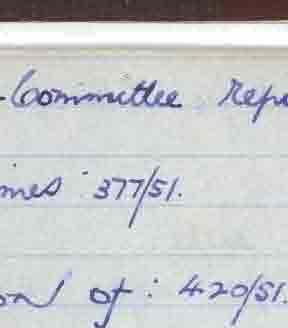 -Committee Repo
mes 377/51.
on of : 420/51.